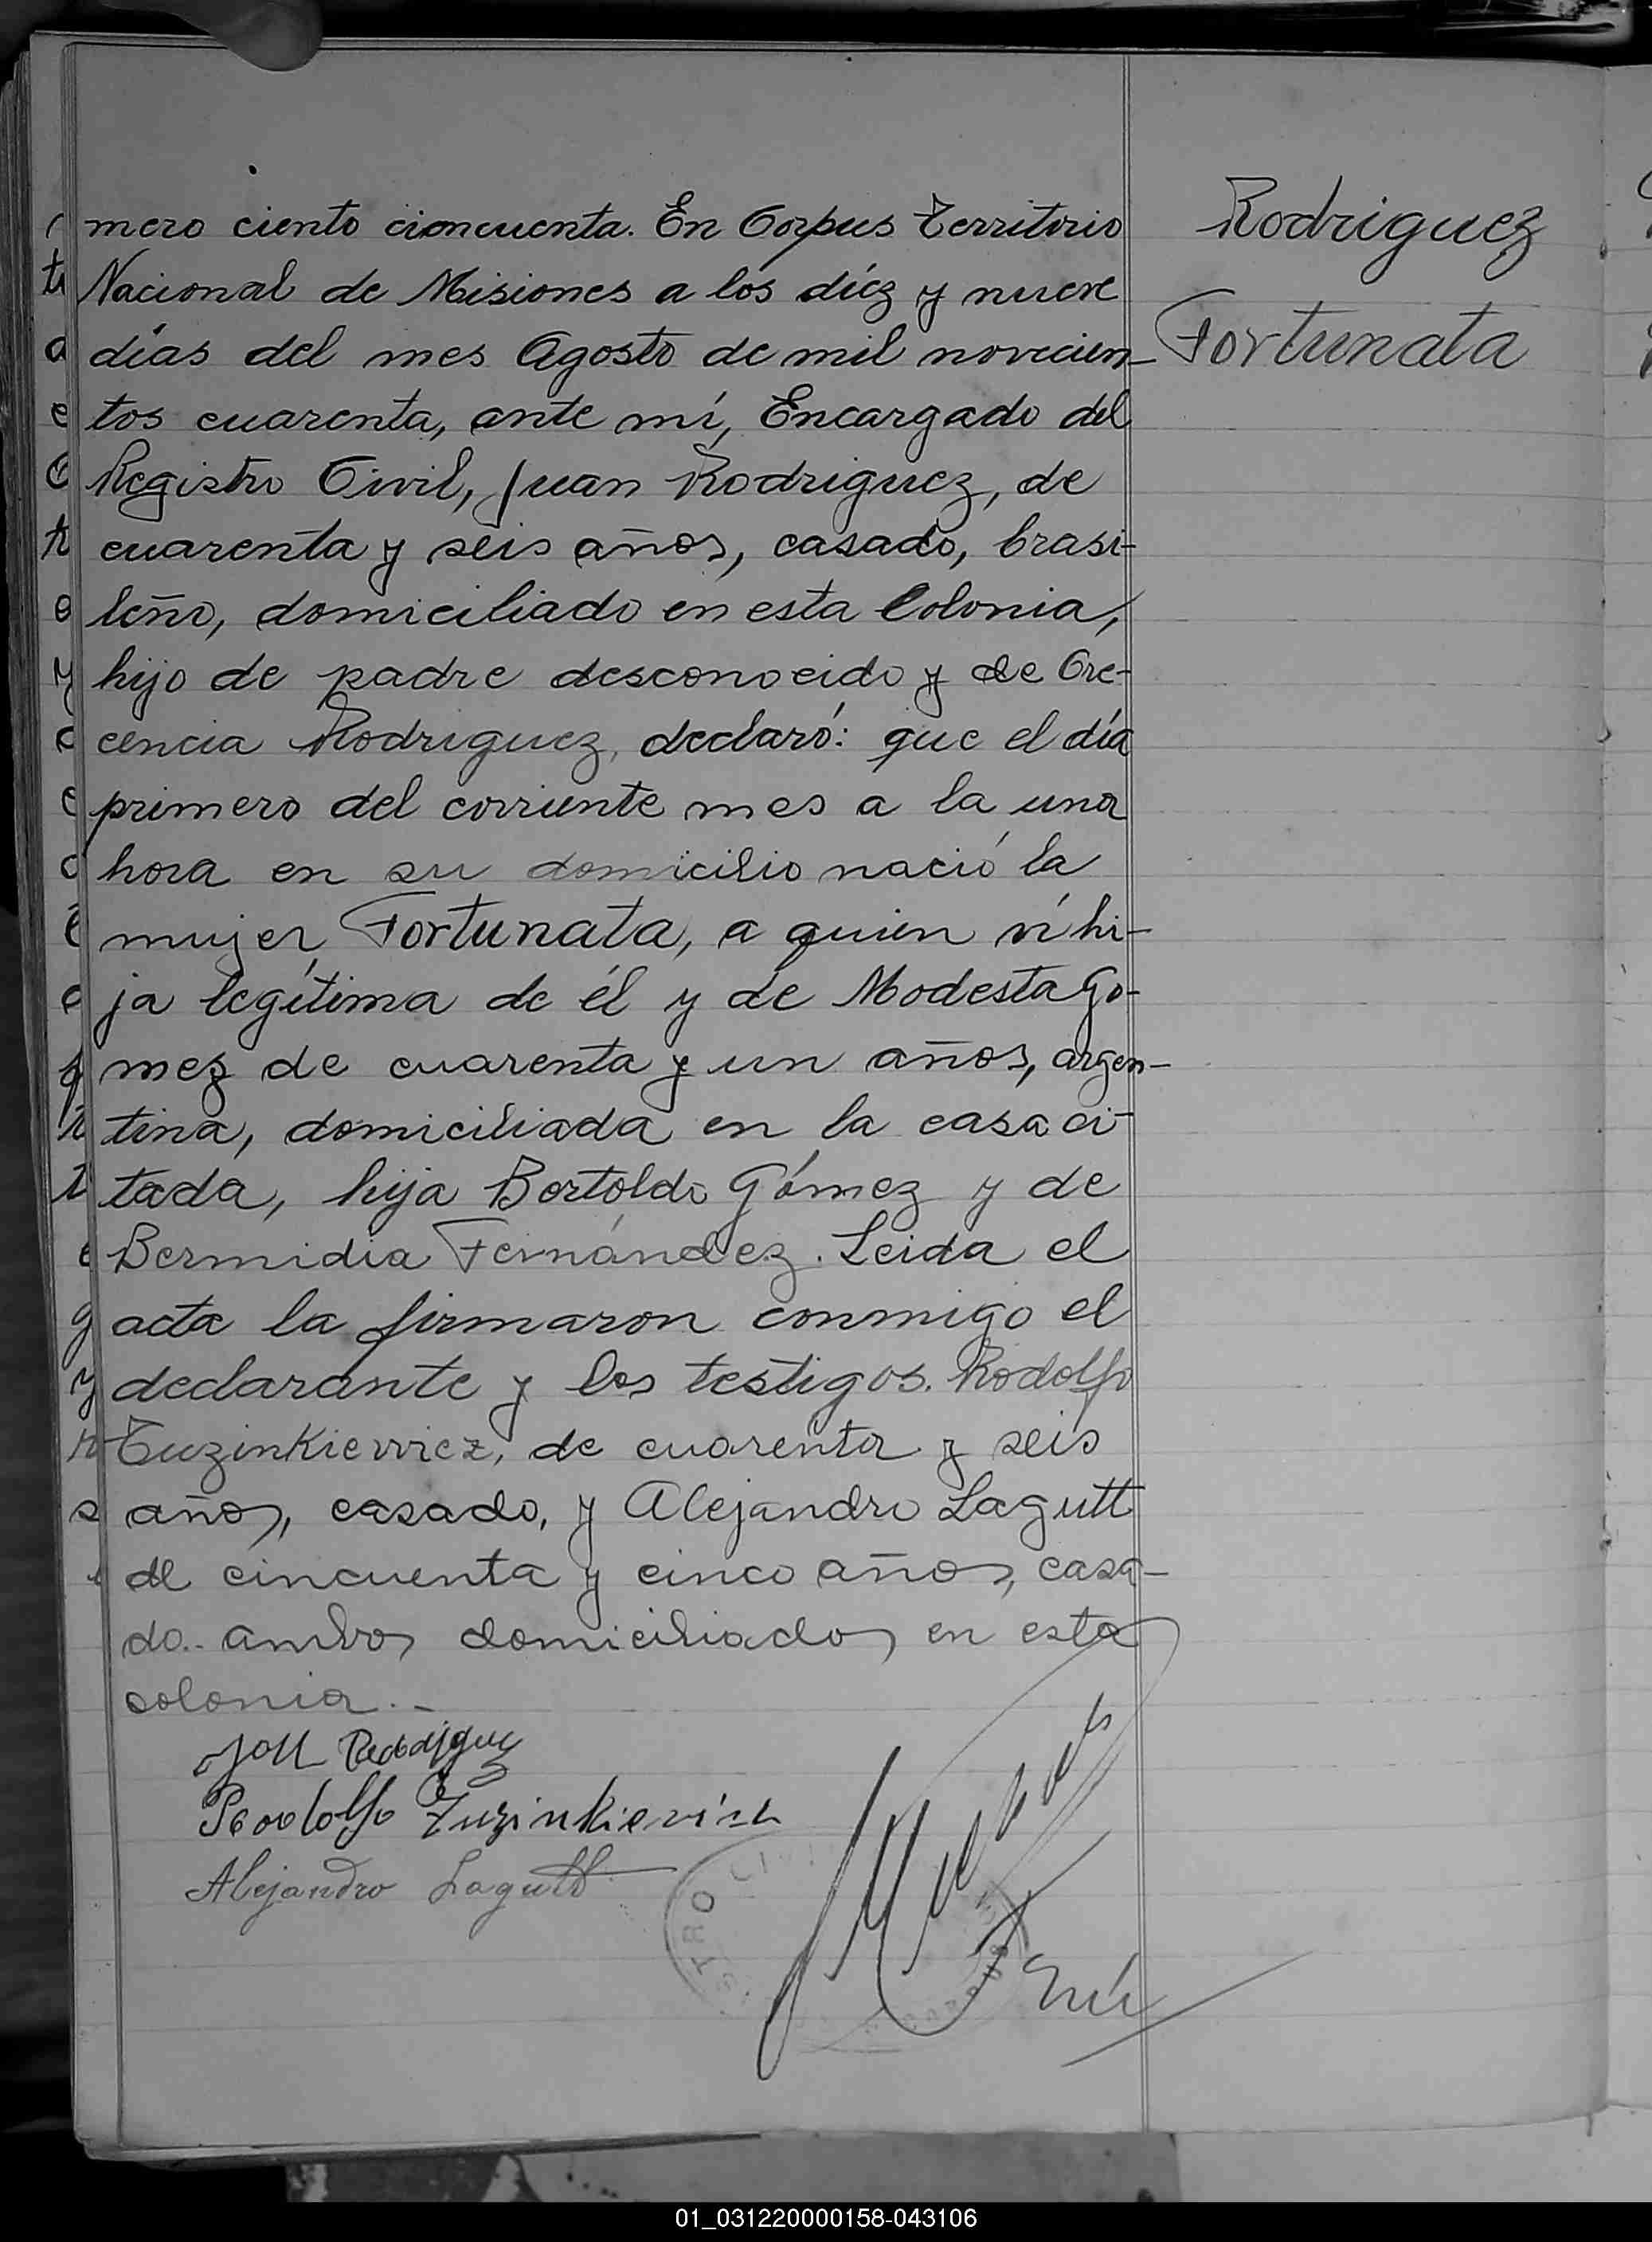 mero ciento cioncuenta. En Corpus Territorio
Nacional de Misiones a los díez y nueve
días del mes Agosto de mil novecien-
tos cuarenta, ante mí, Encargado del
Registro Civil, Juan Rodriguez, de
cuarenta y seis años, casado, brasi-
leño, domiciliado en esta Colonia,
hijo de padre desconocido y de Cre-
cencia Rodriguez, declaró: que el día
primero del corriente mes a la una
hora en su domicilio nació la
mujer, Fortunata, a quien ví hi-
ja legítima de él y de Modesta Go-
mez de cuarenta y un años, argen-
tina, domiciliada en la casa ci-
tada, hija Bertoldo Gómez y de
Bermidia Fernández. Leida el
acta la firmaron conmigo el
declarante y los testigos. Rodolfo
Tuzinkiewicz, de cuarenta y seis
años, casado, y Alejandro Lagutt
de cincuenta y cinco años, casa-
do.- ambos domiciliados en esta
colonia.-
Rodriguez
Fortunata
Rodolfo Tuzinkievich
Alejandro Lagutt
01_031220000158-043106